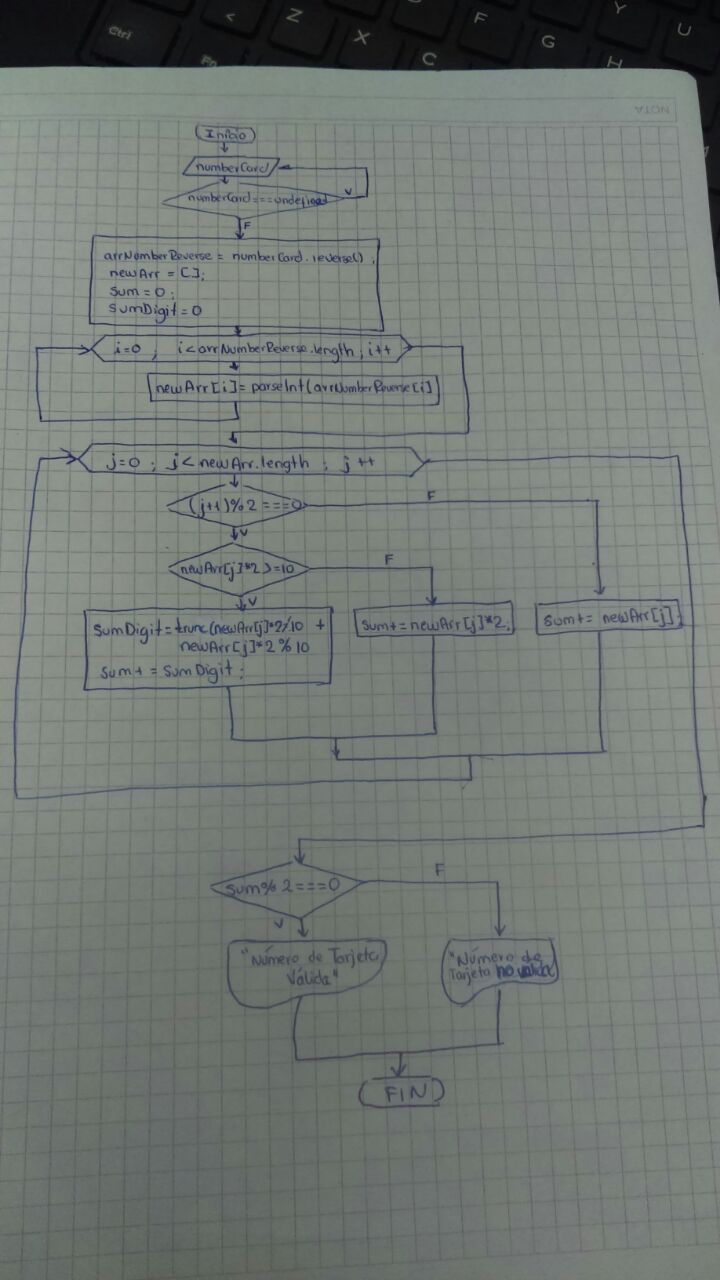 Ctrl
Fn
<
Z
X
C
F
G
H
Y
U
NOTA
Inicio
numberCard
numberCard===undefined
V
F
arrNumberReverse = numberCard.reverse();
newArr = [];
Sum = 0;
SumDigit = 0
i=0 ; i<arrNumberReverse.length ; i++
newArr[i] = parseInt(arrNumberReverse[i]
j=0 ; j<newArr.length ; j++
(j+1)%2===0
F
V
newArr[j]*2>=10
F
V
SumDigit = trunc(newArr[j]*2/10 +
newArr[j]*2%10
Sum+ = SumDigit;
sum+=newArr[j]*2;
sum+= newArr[j];
Sum%2===0
F
V
"Número de Tarjeta
Válida"
"Número de
Tarjeta no valida
FIN